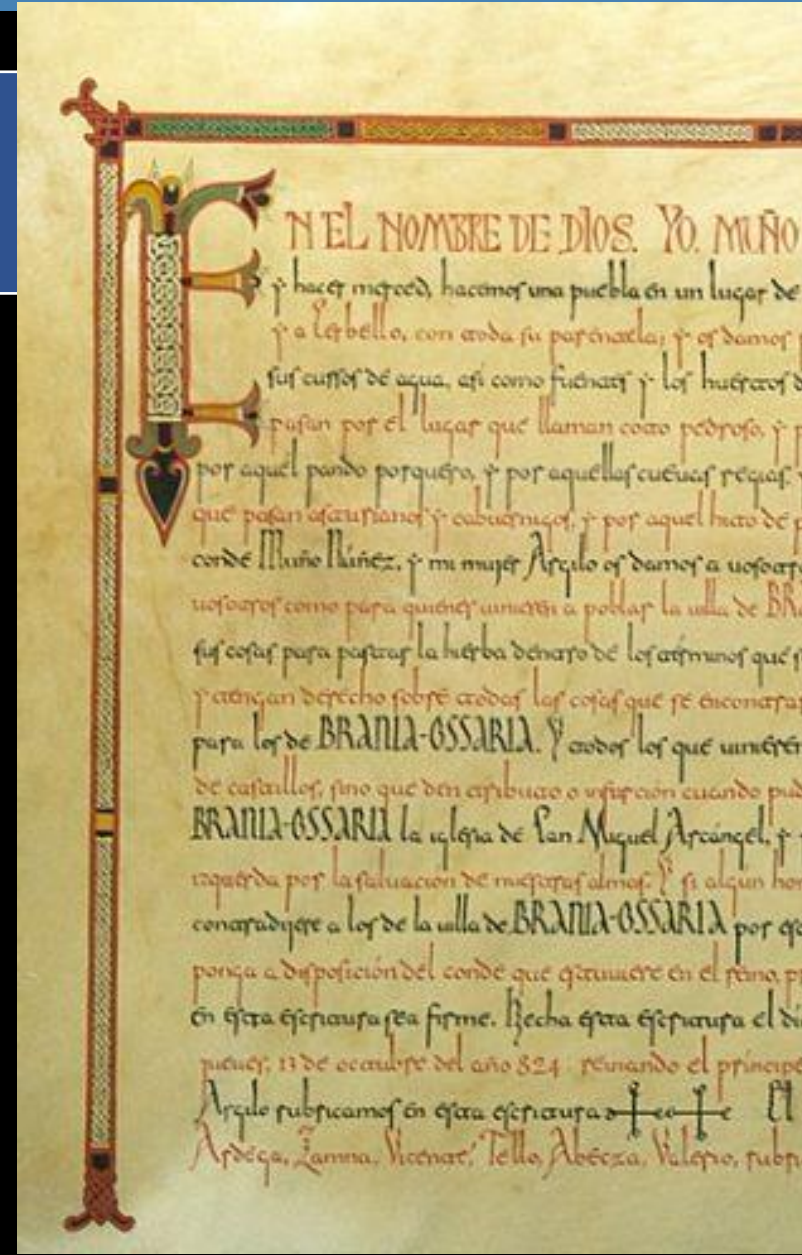 EN EL NOMBRE DE DIOS. YO, MUÑO
y hacer merced, hacemos una puebla en un lugar de
y a Lerbello, con toda su parentela; y os damos
sus cursos de agua, así como fuentes y los huertos
pasan por el lugar que llaman coto pedroso, y
por aquel pando porquero, y por aquellas cuevas regias
que pasan asturianos y cabuernigos, y por aquel hito de
conde Muño Núñez, y mi mujer Argilo os damos a vosotros
vosotros como para quienes vinieren a poblar la villa de
sus cosas para pastar la hierba dentro de los términos que
y tengan derecho sobre todas las cosas que se
para los de BRANIA-OSSARIA. Y todos los que vinieren
de castillos, sino que den tributo o infurción cuando
BRANIA-OSSARIA la iglesia de San Miguel Arcángel, y
izquierda por la salvación de nuestras almas. Y si algun
contradijere a los de la villa de BRANIA-OSSARIA por
ponga a disposición del conde que estuviere en el reino,
en esta escritura sea firme. Hecha esta escritura el
jueves, 13 de octubre del año 824 reinando el príncipe
Argilo rubricamos en esta escritura El
Ardega, Zamna, Vicente, Tello, Abecza, Valerio,